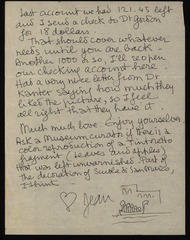 Last account we had 121.45 left
and I send a check to Dr Gordon
for 18 dollars.
That should cover whatever
needs until you are back -
Another 1000 $ so, I'll reopen
our checking account here.
Had a very nice letter from Dr
Kanter saying how much they
liked the picture, so I feel
all right that they have it.
Much much love enjoy yourselves
Ask a Museum curator if there is a
color reproduction of a Tintoretto
fragment (leaves and apples)
that was left unvarnished. Part of
the decoration of Scuola San Marco,
I think -
♡ Jean